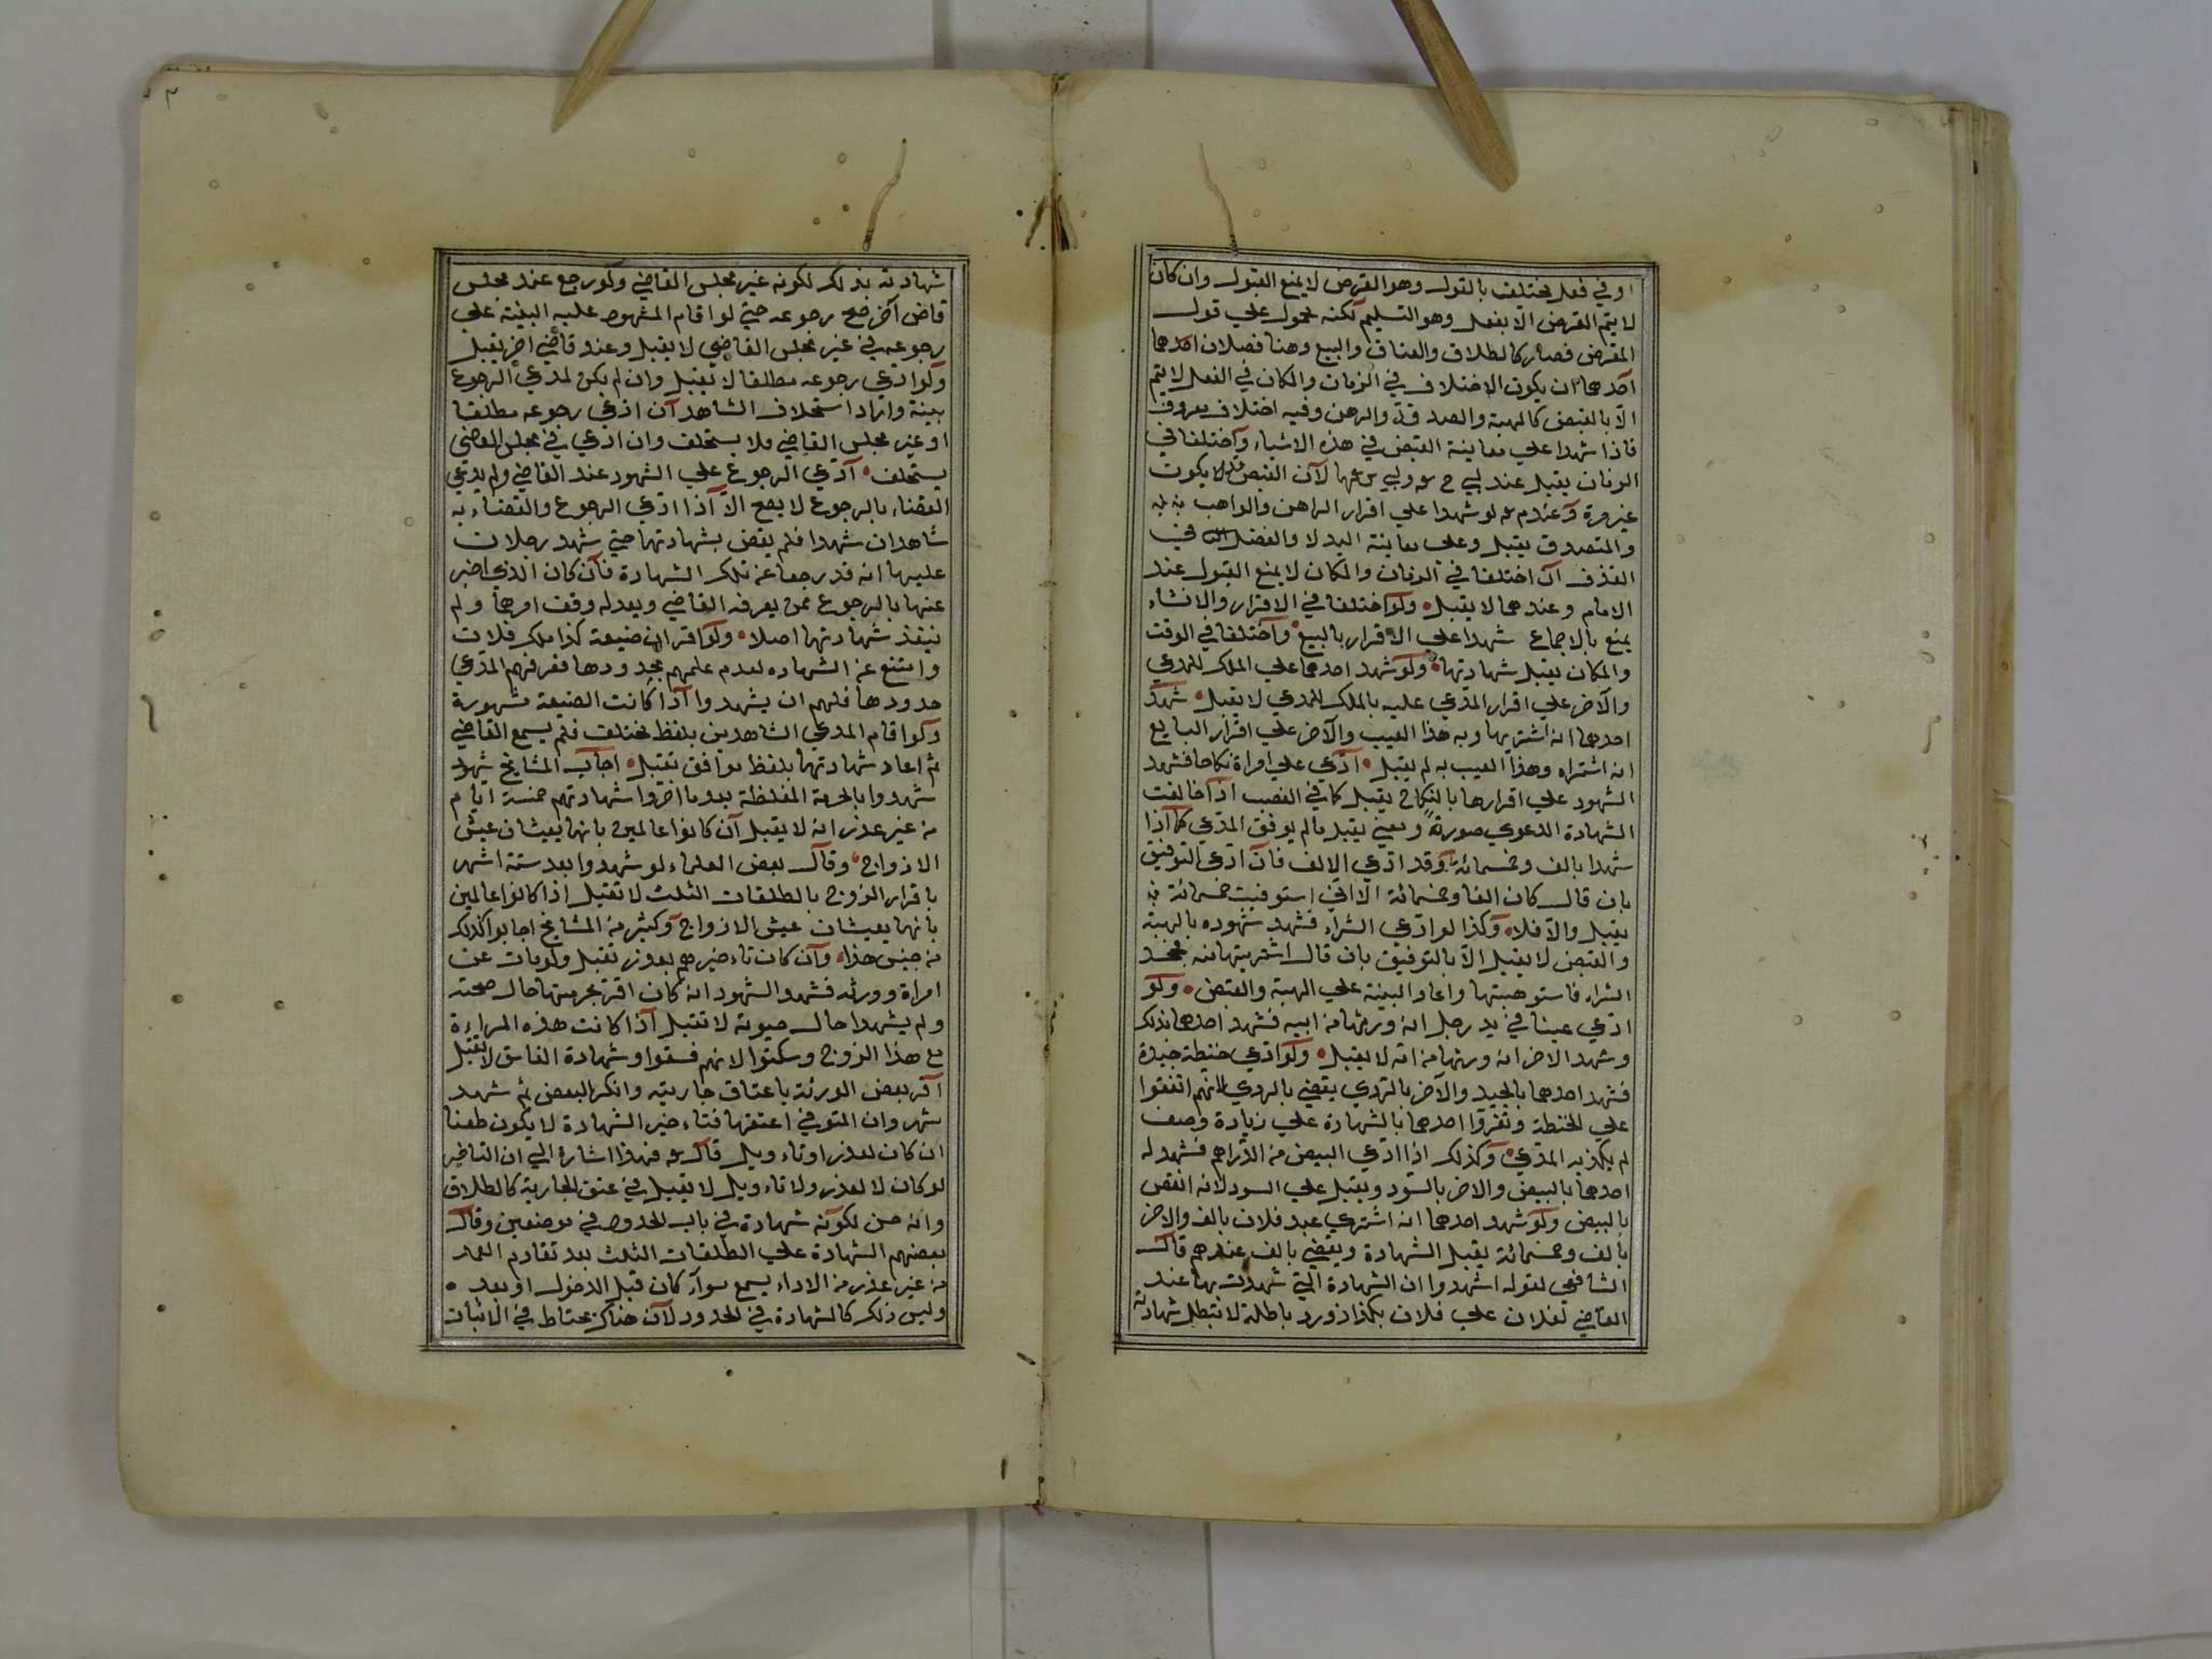 او في فعل يختلف بالقول وهو القرض لا يمنع القبول وان كان
لا يتم القرض الا بفعل وهو التسليم لكنه محمول علي قول
المقرض فصار كالطلاق والعتاق والبيع وهنا فصلان احدهما
احدهما ان يكون الاختلاف في الزمان والمكان في الفعل لا يتم
الا بالقبض كالهبة والصدقة والرهن وفيه اختلاف معروف
فاذا شهدا علي معاينة القبض في هذه الاشياء واختلفا في
الزمان يقبل عند لان القبض يكون
غير مرة وعند لو شهدا علي اقرار الراهن والواهب
والمتصدق يقبل وعلي معاينة اليد لا والفصل في
القذف ان اختلفا في الزمان والمكان لا يمنع القبول عند
الامام وعندهما لا يقبل ولو اختلفا في الاقرار والانشاء
يمنع بالاجماع شهدا علي الاقرار بالبيع واختلفا في الوقت
والمكان يقبل شهادتهما ولو شهد احدهما علي الملك للمدعي
والآخر علي اقرار المدعي عليه بالملك للمدعي لا يقبل شهد
احدهما انه اشتريها وبه هذا العيب والآخر علي اقرار البايع
انه اشتراه وهذا العيب به لم يقبل ادعي علي امراة نكاحا فشهد
الشهود علي اقرارها بالنكاح يقبل كما في الغصب اذا خالفت
الشهادة الدعوي صورة ومعني يقبل مالم يوفق المدعي كما اذا
شهدا بالف وخمسمائة وقد ادعي الالف فان ادعي التوفيق
بان قال كان الفا وخمسمائة الا اني استوفيت خمسمائة
يقبل والا فلا وكذا لو ادعي الشراء فشهد شهوده بالهبة
والقبض لا يقبل الا بالتوفيق بان قال اشتريتها منه فجحد
الشراء فاستوهبتها واعاد البينة علي الهبة والقبض ولو
ادعي عينا في يد رجل انه ورثها من ابيه فشهد احدهما بذلك
وشهد الاخر انه ورثها من امه لا يقبل ولو ادعي حنطة جيدة
فشهد احدهما بالجيد والآخر بالردي يقضي بالردي لانهم اتفقوا
علي الحنطة وتفرقوا احدهما بالشهادة علي زيادة وصف
لم يكذبه المدعي وكذلك اذا ادعي البيض من الدراهم فشهد له
احدهما بالبيض والاخر بالسود ويقبل علي السود لانه انقص
بالبيض ولو شهد احدهما انه اشتري عبد فلان بالف والاخر
بالف وخمسمائة يقبل الشهادة ويقضي بالف عندهم قال
الشافعي لقوله اشهدوا ان الشهادة التي شهدت بها عند
القاضي لفلان علي فلان بكذا زور د باطلة لا تبطل شهادته
شهادته بذلك لكونه غير مجلس القاضي ولو رجع عند مجلس
قاض آخر صح رجوعه حتي لو اقام المشهود عليه البينة علي
رجوعه في غير مجلس القاضي لا يقبل وعند قاضي اخر يقبل
ولو ادعي رجوعه مطلقا لا يقبل وان لم يكن لمدعي الرجوع
بينة واراد استحلاف الشاهد ان ادعي رجوعه مطلقا
او غير مجلس القاضي فلا يستحلف وان ادعي في مجلس القاضي
يستحلف ادعي الرجوع علي الشهود عند القاضي ولم يدعي
القضاء بالرجوع لا يصح الا اذا ادعي الرجوع والقضاء به
شاهدان شهدا فلم يقض بشهادتهما حتي شهد رجلان
عليهما انه قد رجعا عن تلك الشهادة فان كان الذي اخبر
عنهما بالرجوع ممن يعرفه القاضي ويعدله وقف امرهما ولم
ينفذ شهادتهما اصلا ولو اقر ان ضيعة كذا ملك فلان
وامتنع عن الشهاده لعدم علمهم بحدودها فعرفهم المدعي
حدودها فلهم ان يشهدوا اذا كانت الضيعة مشهورة
ولو اقام المدعي الشاهدين بلفظ مختلف فلم يسمع القاضي
ثم اعاد شهادتهما بلفظ موافق تقبل اجاب المشايخ شهود
شهدوا بالحرمة المغلظة بعد ما اخروا شهادتهم خمسة ايام
من غير عذر انه لا يقبل ان كانوا عالمين بانهما يعيشان عيش
الازواج وقال بعض العلماء لو شهدوا بعد ستة اشهر
باقرار الزوج بالطلقات الثلث لا تقبل اذا كانوا عالمين
بانهما يعيشان عيش الازواج وكثير من المشايخ اجابوا كذلك
من جنس هذا وان كان تاءخيرهم بعذر تقبل ولو مات عن
امراة وورثه فشهد الشهود انه كان اقر بحرمتها حال صحته
ولم يشهدا حال حيوته لا تقبل اذا كانت هذه المراءة
مع هذا الزوج وسكتوا لانهم فسقوا وشهادة الفاسق لا تقبل
اقر بعض الورثة باعتاق جاريته وانكر البعض ثم شهد
شهر وان المتوفي اعتقها فتاءخير الشهادة لا يكون طعنا
ان كان لعذر او تاءويل قال فهذا اشارة الي ان التاخير
لو كان لا لعذر ولا تاءويل لا يقبل في عتق الجارية كالطلاق
وانه حسن لكونه شهادة في باب الحدود في موضعين وقال
بعضهم الشهادة علي الطلقات الثلث بعد تقادم العهد
من غير عذر من الاداء يسمع سواء كان قبل الدخول او بعد
وليس ذلك كالشهادة في الحدود لان هناك يحتاط في الاثبات